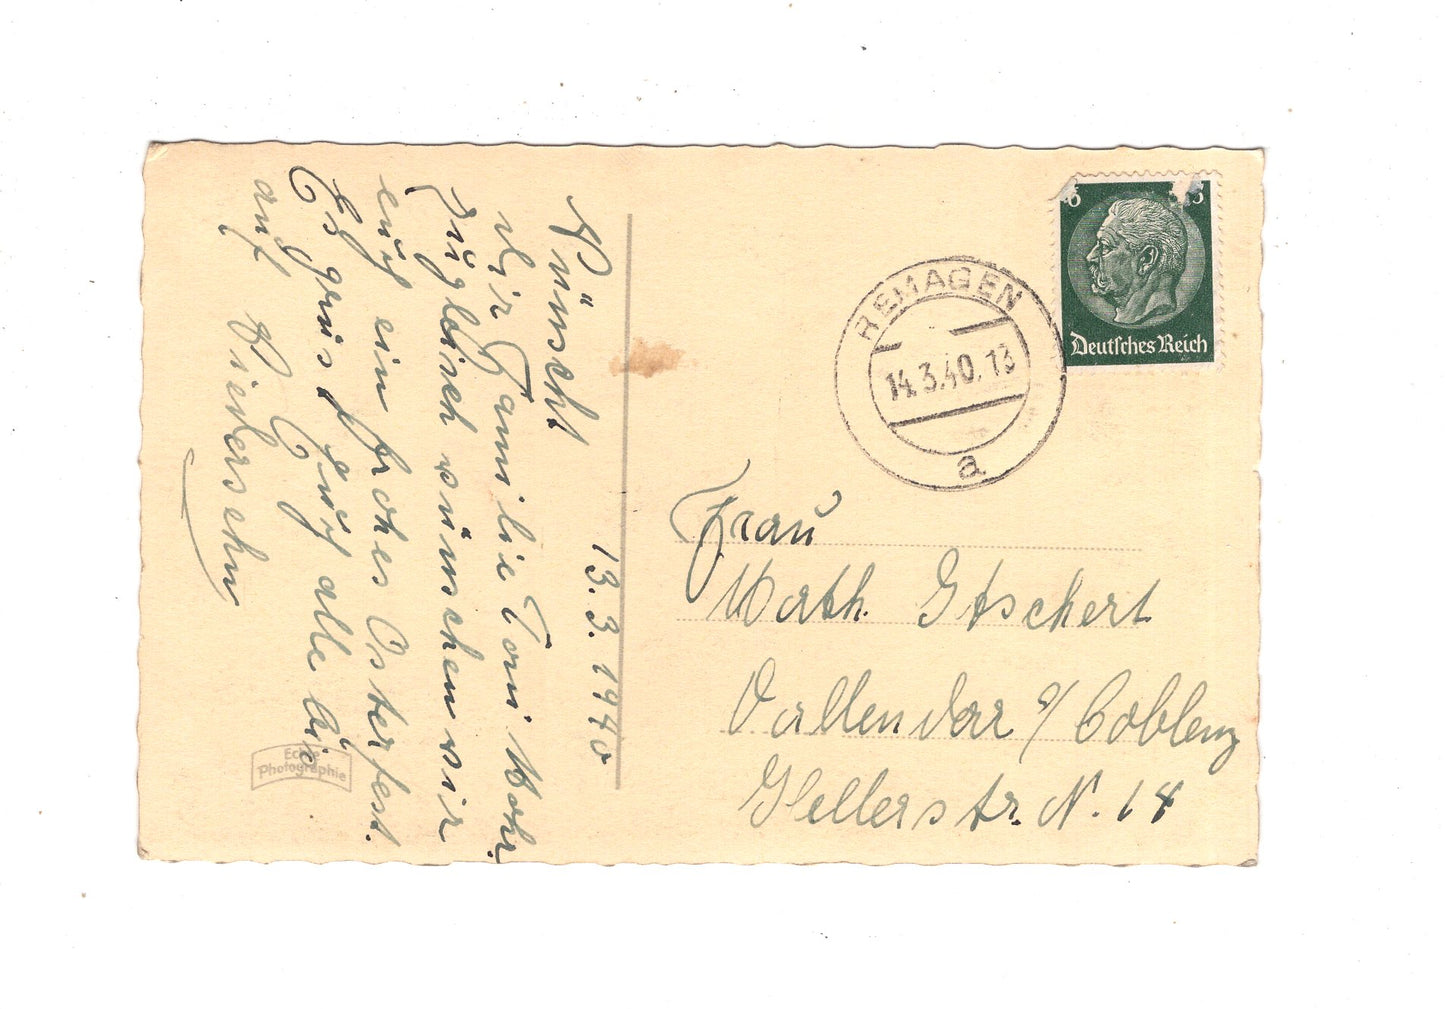 13.3.1940
Wünscht
dir Familie Toni Mohr.
Zugleich wünschen wir
euch ein frohes Osterfest.
Es grüs euch alle bis
auf Wiedersehn
Echte
Photographie
REMAGEN
14.3.40.13
a
6 6
Deutsches Reich
Frau
Math. Gtschert
Vallendar a/ Coblenz
Hellerstr. N. 14